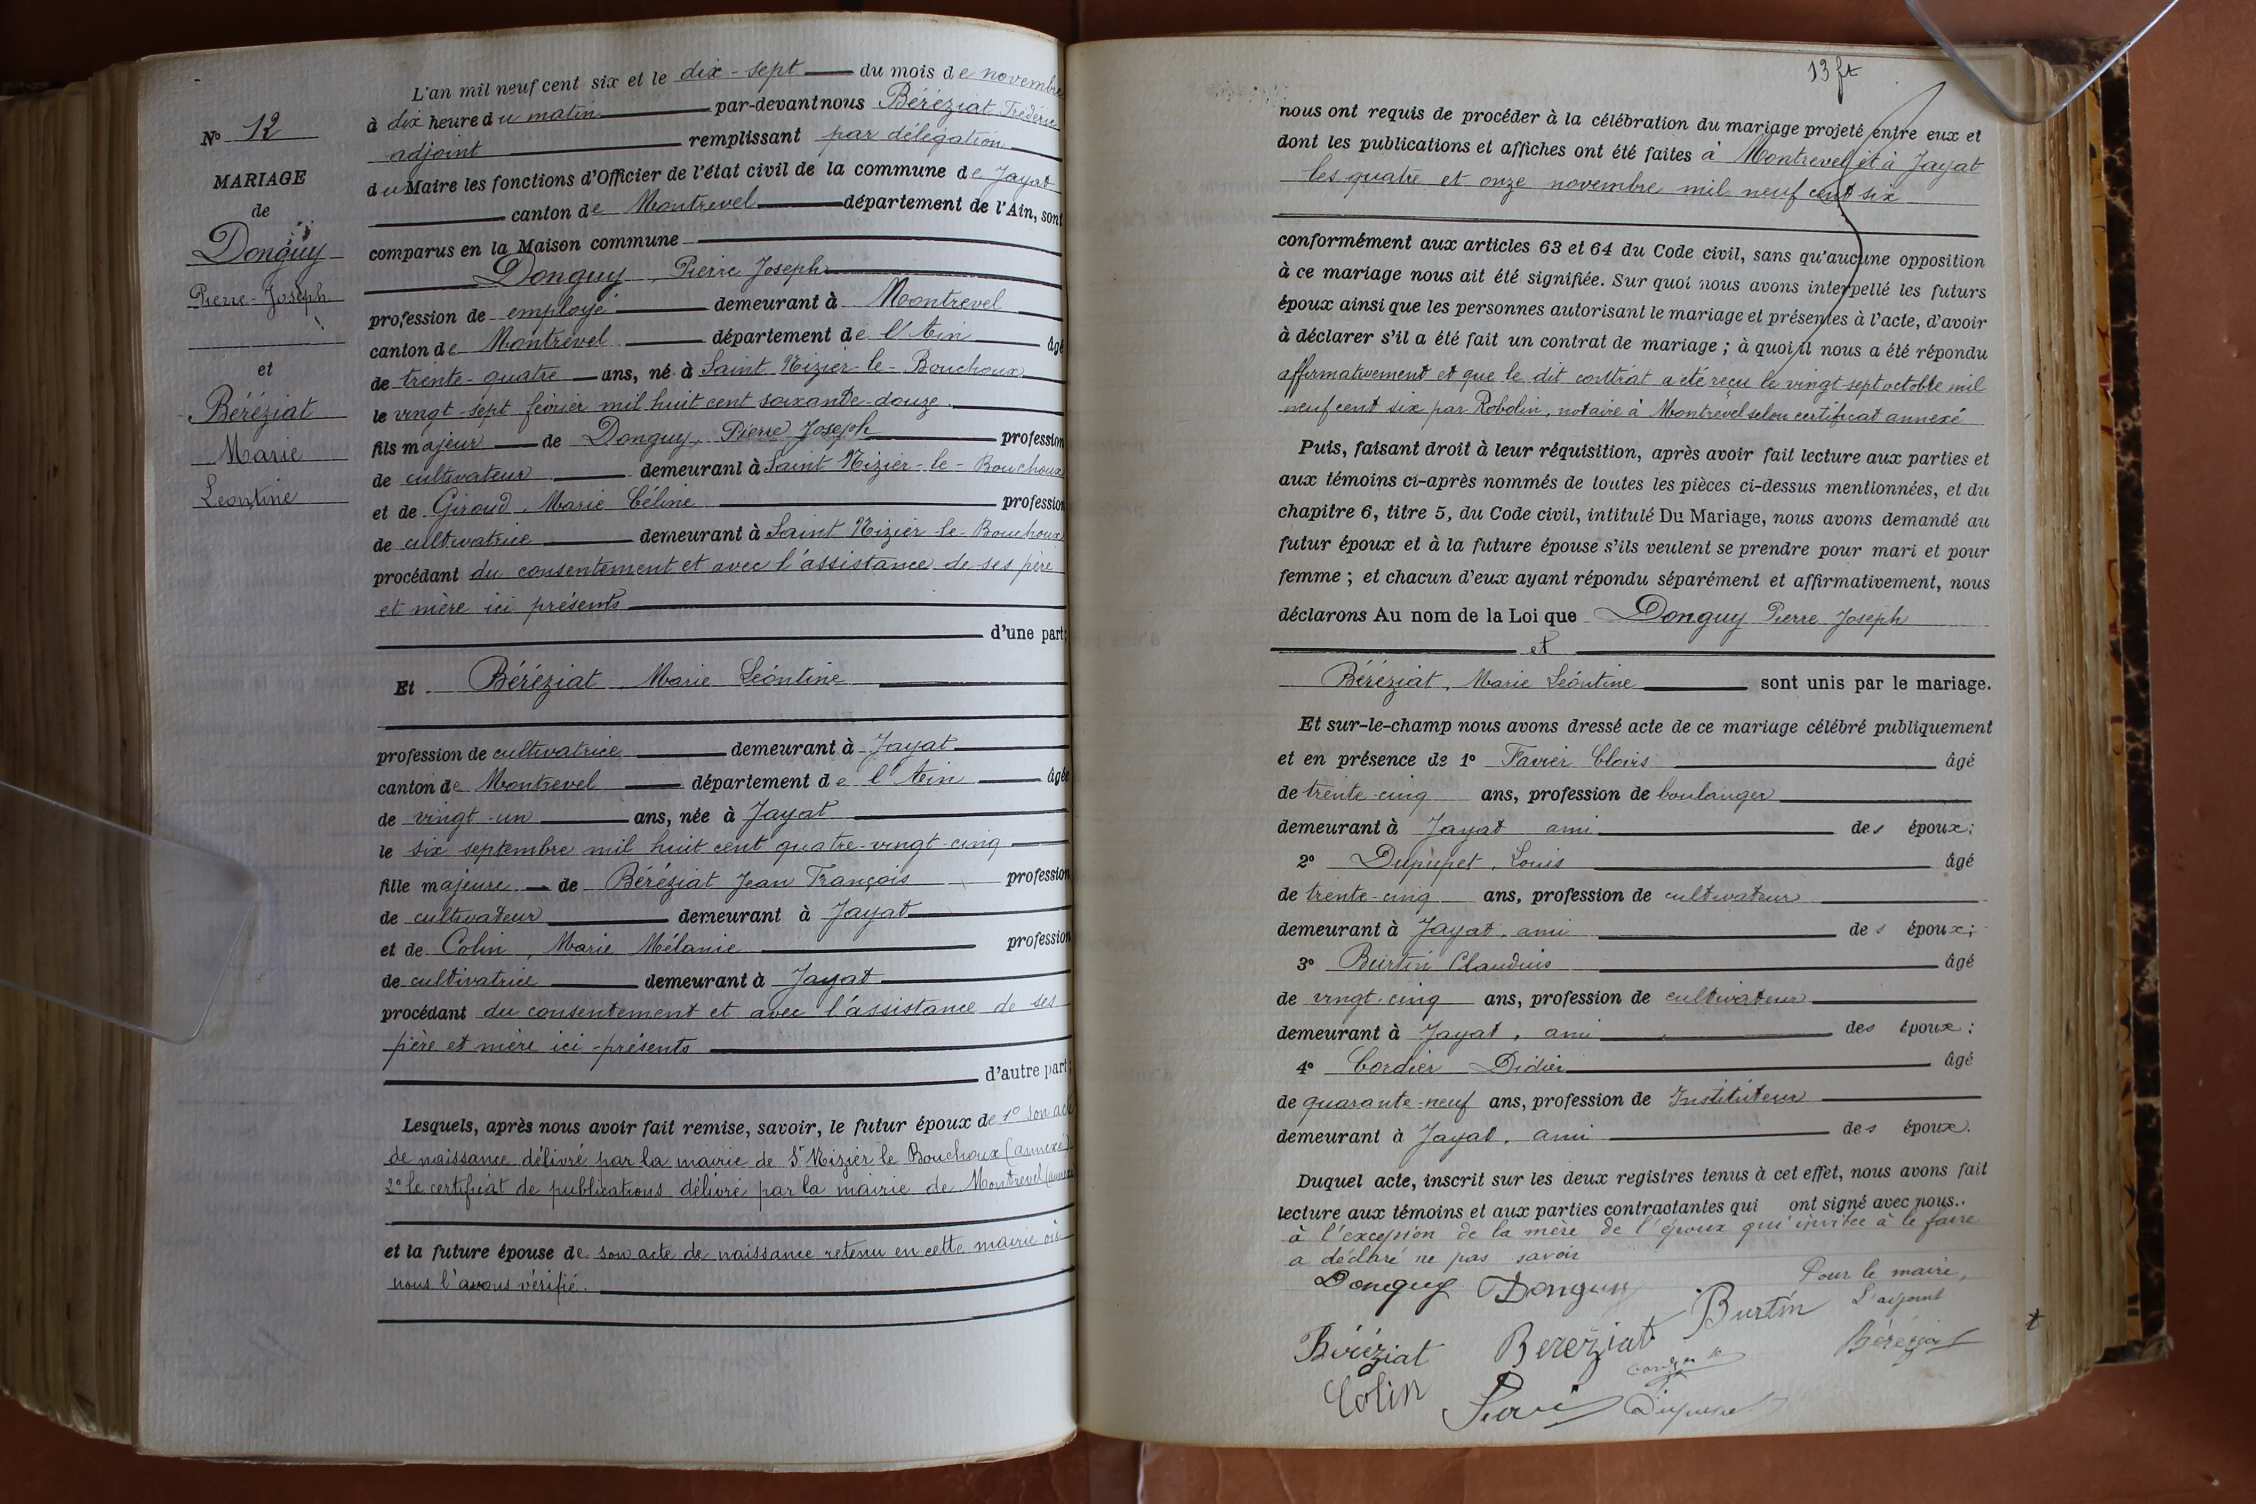 N° 12
MARIAGE
de
Donguy
Pierre-Joseph
et
Béréziat
Marie
Léontine
L'an mil neuf cent six et le dix-sept du mois de novembre
à dix heure du matin par-devant nous Béréziat Frédéric
adjoint remplissant par délégation
du Maire les fonctions d'Officier de l'état civil de la commune de Jayat
canton de Montrevel département de l'Ain, sont
comparus en la Maison commune
Donguy, Pierre Joseph
profession de employé demeurant à Montrevel
canton de Montrevel département de l'Ain âgé
de trente-quatre ans, né à Saint Nizier-le-Bouchoux
le vingt-sept février mil huit cent soixante-douze
fils majeur de Donguy, Pierre Joseph profession
de cultivateur demeurant à Saint Nizier-le-Bouchoux
et de Giroud, Marie Céline profession
de cultivatrice demeurant à Saint Nizier-le-Bouchoux
procédant du consentement et avec l'assistance de ses père
et mère ici présents
d'une part;
Et Béréziat Marie Léontine
profession de cultivatrice demeurant à Jayat
canton de Montrevel département de l'Ain âgée
de vingt-un ans, née à Jayat
le six septembre mil huit cent quatre-vingt-cinq
fille majeure de Béréziat Jean François profession
de cultivateur demeurant à Jayat
et de Colin, Marie Mélanie profession
de cultivatrice demeurant à Jayat
procédant du consentement et avec l'assistance de ses
père et mère ici-présents
d'autre part;
Lesquels, après nous avoir fait remise, savoir, le futur époux de 1° son acte
de naissance délivré par la mairie de St Nizier le Bouchoux (annexé)
2° le certificat de publications délivré par la mairie de Montrevel (annexé
et la future épouse de son acte de naissance retenu en cette mairie où
nous l'avons vérifié.
13 ft
nous ont requis de procéder à la célébration du mariage projeté entre eux et
dont les publications et affiches ont été faites à Montrevel et à Jayat
les quatre et onze novembre mil neuf cent six
conformément aux articles 63 et 64 du Code civil, sans qu'aucune opposition
à ce mariage nous ait été signifiée. Sur quoi nous avons interpellé les futurs
époux ainsi que les personnes autorisant le mariage et présentes à l'acte, d'avoir
à déclarer s'il a été fait un contrat de mariage; à quoi il nous a été répondu
affirmativement et que le dit contrat a été reçu le vingt sept octobre mil
neuf cent six par Robolin, notaire à Montrevel selon certificat annexé
Puis, faisant droit à leur réquisition, après avoir fait lecture aux parties et
aux témoins ci-après nommés de toutes les pièces ci-dessus mentionnées, et du
chapitre 6, titre 5, du Code civil, intitulé Du Mariage, nous avons demandé au
futur époux et à la future épouse s'ils veulent se prendre pour mari et pour
femme; et chacun d'eux ayant répondu séparément et affirmativement, nous
déclarons Au nom de la Loi que Donguy Pierre Joseph
et
Béréziat, Marie Léontine sont unis par le mariage.
Et sur-le-champ nous avons dressé acte de ce mariage célébré publiquement
et en présence de 1° Favier Clovis âgé
de trente-cinq ans, profession de boulanger
demeurant à Jayat ami des époux;
2° Dupupet, Louis âgé
de trente-cinq ans, profession de cultivateur
demeurant à Jayat, ami des époux;
3° Burtin Claudius âgé
de vingt-cinq ans, profession de cultivateur
demeurant à Jayat, ami des époux;
4° Cordier Didier âgé
de quarante-neuf ans, profession de Instituteur
demeurant à Jayat, ami des époux.
Duquel acte, inscrit sur les deux registres tenus à cet effet, nous avons fait
lecture aux témoins et aux parties contractantes qui ont signé avec nous.
à l'exception de la mère de l'époux qui invitée à le faire
a déclaré ne pas savoir
Donguy Donguy Pour le maire,
Burtin L'adjoint
Béréziat Bereziat Béréziat
Colin